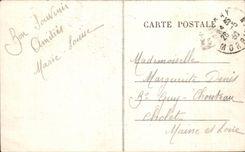 CARTE POSTALE
Bon Souvenir
Amitiés
Marie Louise
Mademoiselle
Marguerite Denis
Bd Guy-Chouteau
Cholet
Maine et Loire